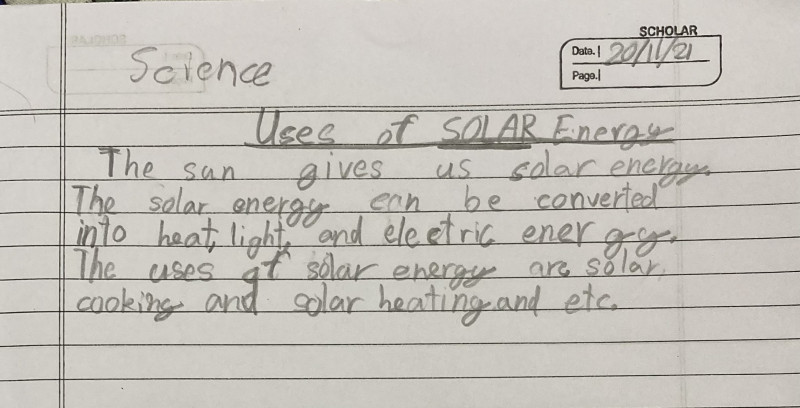 SCHOLAR
Date. 20/11/21
Page.
Science
Uses of SOLAR Energy
The sun gives us solar energy.
The solar energy can be converted
into heat, light, and electric energy.
The uses of solar energy are solar
cooking and solar heating and etc.